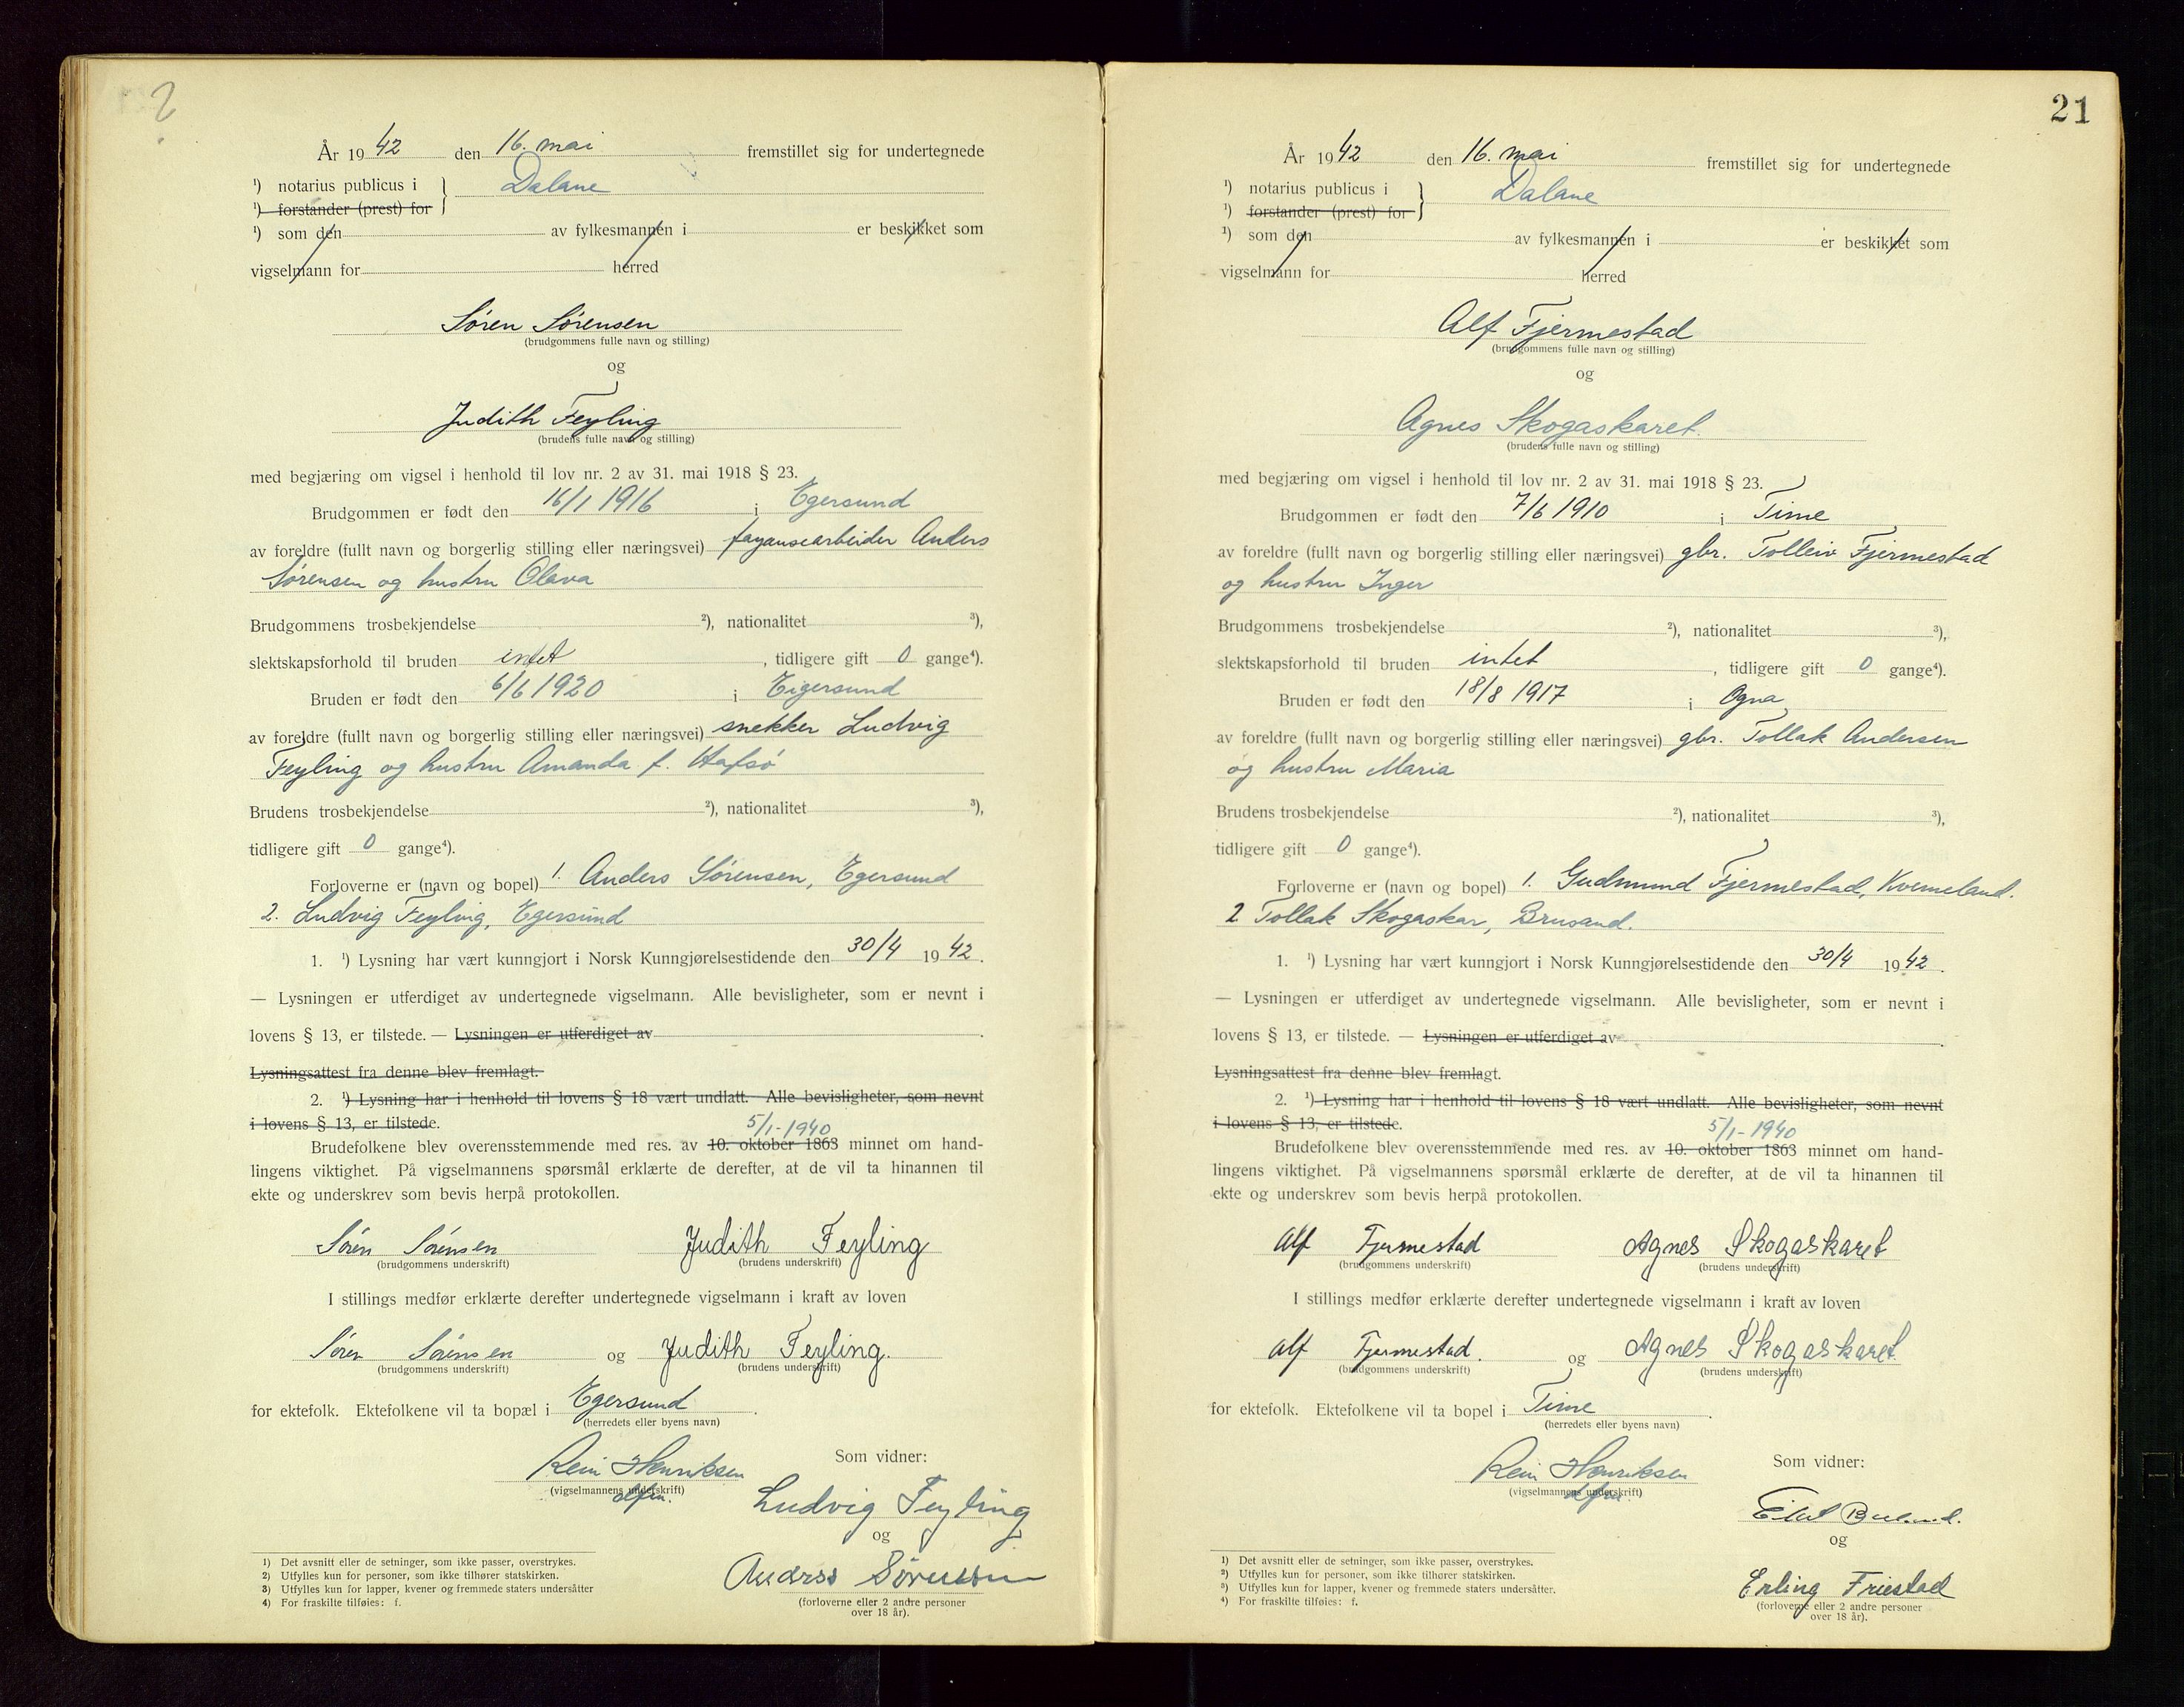 År 1942 den 16. mai fremstillet sig for undertegnede
¹) notarius publicus i } Dalane
¹) forstander (prest) for
¹) som den av fylkesmannen i er beskikket som
vigselmann for herred
Søren Sørensen
(brudgommens fulle navn og stilling)
og
Judith Feyling
(brudens fulle navn og stilling)
med begjæring om vigsel i henhold til lov nr. 2 av 31. mai 1918 § 23.
Brudgommen er født den 16/1 1916 i Egersund
av foreldre (fullt navn og borgerlig stilling eller næringsvei) fayansearbeider Anders
Sørensen og hustru Olava
Brudgommens trosbekjendelse ²), nationalitet ³),
slektskapsforhold til bruden intet, tidligere gift 0 gange⁴).
Bruden er født den 6/6 1920 i Eigersund
av foreldre (fullt navn og borgerlig stilling eller næringsvei) snekker Ludvig
Feyling og hustru Amanda f. Hafsø
Brudens trosbekjendelse ²), nationalitet ³),
tidligere gift 0 gange⁴).
Forloverne er (navn og bopel) 1. Anders Sørensen, Egersund
2. Ludvig Feyling, Egersund
1. ¹) Lysning har vært kunngjort i Norsk Kunngjørelsestidende den 30/4 1942.
— Lysningen er utferdiget av undertegnede vigselmann. Alle bevisligheter, som er nevnt i
lovens § 13, er tilstede. — Lysningen er utferdiget av .
Lysningsattest fra denne blev fremlagt.
2. ¹) Lysning har i henhold til lovens § 18 vært undlatt. Alle bevisligheter, som nevnt
i lovens § 13, er tilstede.
5/1-1940
Brudefolkene blev overensstemmende med res. av 10. oktober 1863 minnet om hand-
lingens viktighet. På vigselmannens spørsmål erklærte de derefter, at de vil ta hinannen til
ekte og underskrev som bevis herpå protokollen.
Søren Sørensen Judith Feyling
(brudgommens underskrift) (brudens underskrift)
I stillings medfør erklærte derefter undertegnede vigselmann i kraft av loven
Søren Sørensen og Judith Feyling.
(brudgommens underskrift) (brudens underskrift)
for ektefolk. Ektefolkene vil ta bopæl i Egersund.
(herredets eller byens navn)
Rein Henriksen
(vigselmannens underskrift)
Som vidner:
Ludvig Feyling
og
Anders Sørensen
(forloverne eller 2 andre personer
over 18 år).
1) Det avsnitt eller de setninger, som ikke passer, overstrykes.
2) Utfylles kun for personer, som ikke tilhører statskirken.
3) Utfylles kun for lapper, kvener og fremmede staters undersåtter
4) For fraskilte tilføies: f.
21
År 1942 den 16. mai fremstillet sig for undertegnede
¹) notarius publicus i } Dalane
¹) forstander (prest) for
¹) som den av fylkesmannen i er beskikket som
vigselmann for herred
Alf Fjermestad
(brudgommens fulle navn og stilling)
og
Agnes Skogaskaret.
(brudens fulle navn og stilling)
med begjæring om vigsel i henhold til lov nr. 2 av 31. mai 1918 § 23.
Brudgommen er født den 7/6 1910 i Time
av foreldre (fullt navn og borgerlig stilling eller næringsvei) gbr. Tolleiv Fjermestad
og hustru Inger
Brudgommens trosbekjendelse ²), nationalitet ³),
slektskapsforhold til bruden intet, tidligere gift 0 gange⁴).
Bruden er født den 18/8 1917 i Ogna
av foreldre (fullt navn og borgerlig stilling eller næringsvei) gbr. Tollak Andersen
og hustru Maria
Brudens trosbekjendelse ²), nationalitet ³),
tidligere gift 0 gange⁴).
Forloverne er (navn og bopel) 1. Gudmund Fjermestad, Kverneland.
2 Tollak Skogaskar, Brusand.
1. ¹) Lysning har vært kunngjort i Norsk Kunngjørelsestidende den 30/4 1942.
— Lysningen er utferdiget av undertegnede vigselmann. Alle bevisligheter, som er nevnt i
lovens § 13, er tilstede. — Lysningen er utferdiget av .
Lysningsattest fra denne blev fremlagt.
2. ¹) Lysning har i henhold til lovens § 18 vært undlatt. Alle bevisligheter, som nevnt
i lovens § 13, er tilstede.
5/1-1940
Brudefolkene blev overensstemmende med res. av 10. oktober 1863 minnet om hand-
lingens viktighet. På vigselmannens spørsmål erklærte de derefter, at de vil ta hinannen til
ekte og underskrev som bevis herpå protokollen.
Alf Fjermestad Agnes Skogaskaret
(brudgommens underskrift) (brudens underskrift)
I stillings medfør erklærte derefter undertegnede vigselmann i kraft av loven
Alf Fjermestad. og Agnes Skogaskaret.
(brudgommens underskrift) (brudens underskrift)
for ektefolk. Ektefolkene vil ta bopel i Time.
(herredets eller byens navn)
Rein Henriksen
(vigselmannens underskrift)
Som vidner:
og
Erling Friestad
(forloverne eller 2 andre personer
over 18 år).
1) Det avsnitt eller de setninger, som ikke passer, overstrykes.
2) Utfylles kun for personer, som ikke tilhører statskirken.
3) Utfylles kun for lapper, kvener og fremmede staters undersåtter.
4) For fraskilte tilføies: f.